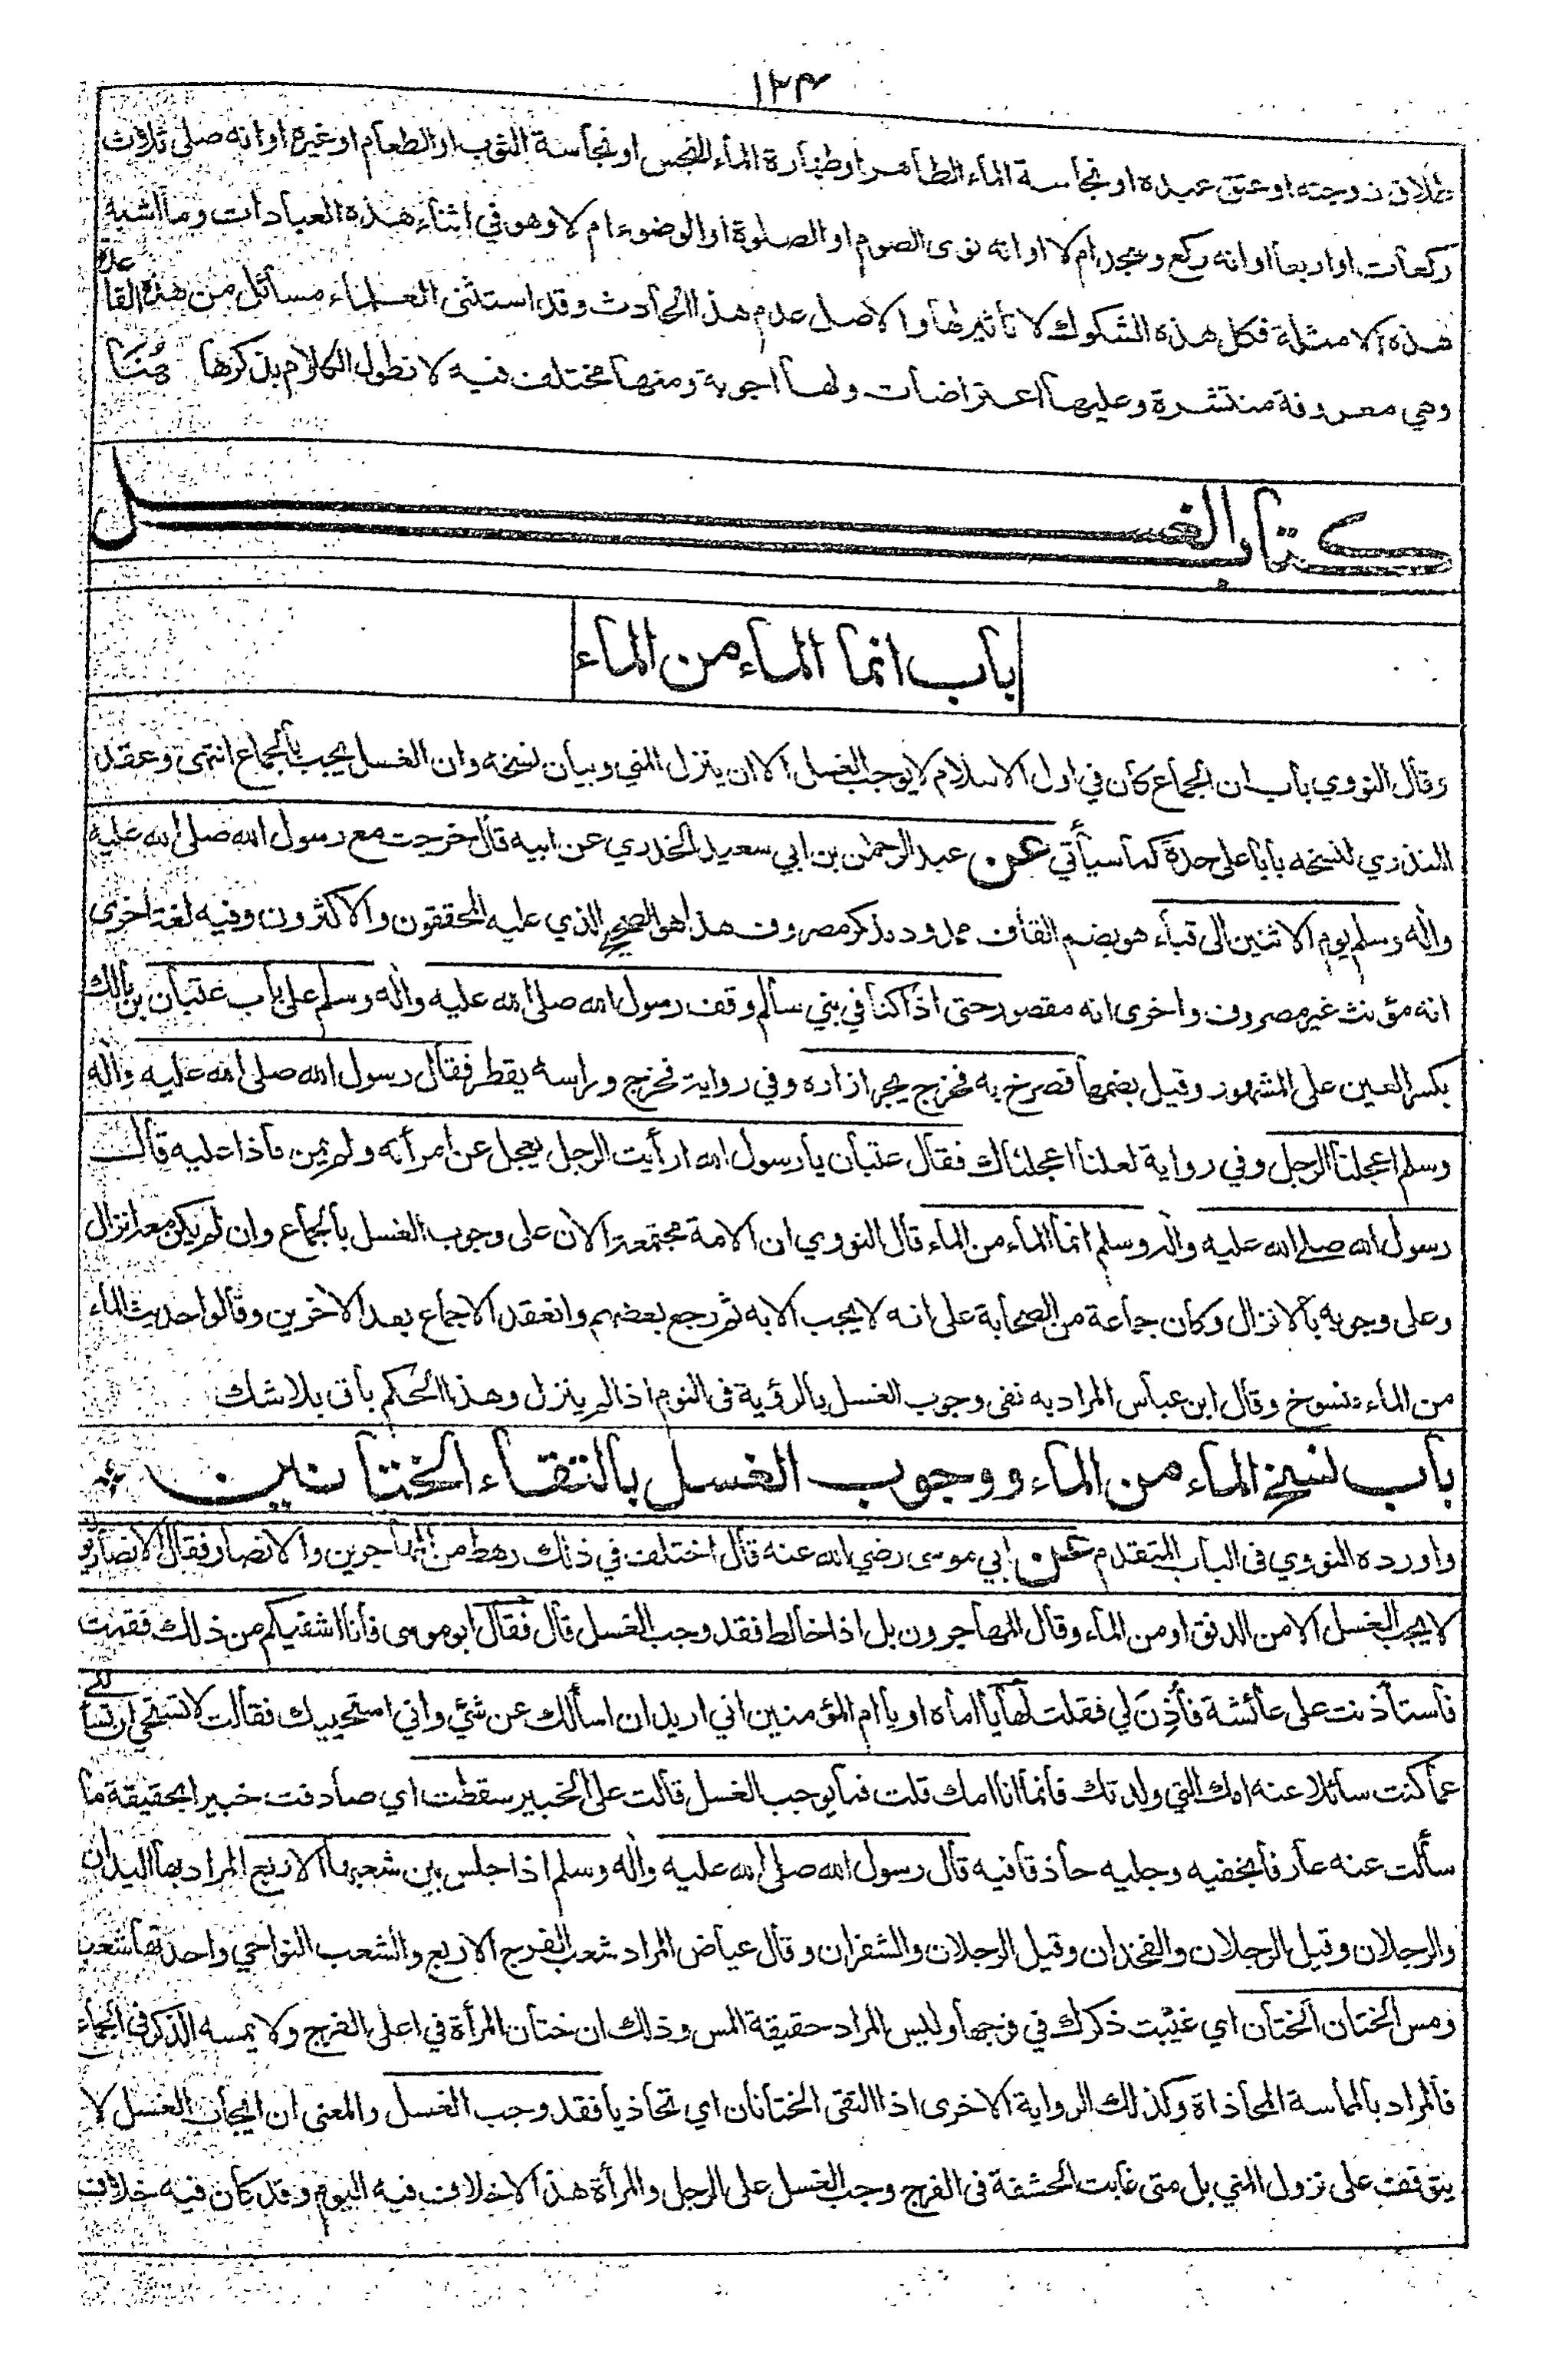 ١٢٣
طلاق زوجته او عتق عبده او نجاسة الماء الطاهر او طهارة الماء النجس او نجاسة الثوب او الطعام او غيره او انه صلى ثلاث
ركعات او اربعا او انه ركع وسجد ام لا او انه نوى الصوم او الصلوة او الوضوء ام لا وهو في اثناء هذه العبادات وما اشبه
هذه الامثلة فكل هذه الشكوك لا تأثير لها والاصل عدم هذا الحادث وقد استثنى العلماء مسائل من هذه القاعدة
وهي معروفة منتشرة وعليها اعتراضات ولها اجوبة ومنها مختلف فيه لا نطول الكلام بذكرها هُنَا
كتاب الغسل
باب انما الماء من الماء
وقال النووي باب ان الجماع كان في اول الاسلام لا يوجب الغسل الا ان ينزل المني وبيان نسخه وان الغسل يجب بالجماع انتهى وعقد
المنذري لنسخه بابا على حدة كما سيأتي عن عبد الرحمن بن ابي سعيد الخدري عن ابيه قال خرجت مع رسول الله صلى الله عليه
واٰله وسلم يوم الاثنين الى قباء هو بضم القاف ممدود مذكر مصروف هذا هو الصحيح الذي عليه المحققون والاكثرون وفيه لغة اخرى
انه مؤنث غير مصروف واخرى انه مقصور حتى اذا كنا في بني سالم وقف رسول الله صلى الله عليه واٰله وسلم على باب عتبان بن مالك
بكسر العين على المشهور وقيل بضمها فصرخ به فخرج يجر ازاره وفي رواية فخرج وراسه يقطر فقال رسول الله صلى الله عليه واٰله
وسلم اعجلنا الرجل وفي رواية لعلنا اعجلناك فقال عتبان يا رسول الله ارأيت الرجل يعجل عن امرأته ولم يمن ماذا عليه قال
رسول الله صلى الله عليه واٰله وسلم انما الماء من الماء قال النووي ان الامة مجتمعة الاٰن على وجوب الغسل بالجماع وان لم يكن معه انزال
وعلى وجوبه بالانزال وكان جماعة من الصحابة على انه لا يجب الا به ثم رجع بعضهم وانعقد الاجماع بعد الاٰخرين وقالوا حديث الماء
من الماء منسوخ وقال ابن عباس المراد به نفي وجوب الغسل بالرؤية فى النوم اذا لم ينزل وهذا الحكم باق بلا شك
باب نسخ الماء من الماء ووجوب الغسل بالتقاء الختانين
واورده النووي فى الباب المتقدم عن ابي موسى رضي الله عنه قال اختلف في ذلك رهط من المهاجرين والانصار فقال الانصاريون
لا يجب الغسل الا من الدفق او من الماء وقال المهاجرون بل اذا خالط فقد وجب الغسل قال فقال ابو موسى فانا اشفيكم من ذلك فقمت
فاستأذنت على عائشة فأُذِنَ لي فقلت لها يا اماه او يا ام المؤمنين اني اريد ان اسألك عن شئ واني استحييك فقالت لا تستحي ان تسألني
عما كنت سائلا عنه امك التي ولدتك فانما انا امك قلت فما يوجب الغسل قالت على الخبير سقطت اي صادفت خبيرا بحقيقة ما
سألت عنه عارفا بخفيه وجليه حاذقا فيه قال رسول الله صلى الله عليه واٰله وسلم اذا جلس بين شعبها الاربع المراد بها اليدان
والرجلان وقيل الرجلان والفخذان وقيل الرجلان والشفران وقال عياض المراد شعب الفرج الاربع والشعب النواحي واحدتها شعبة
ومس الختان الختان اي غيّبت ذكرك في فرجها وليس المراد حقيقة المس وذلك ان ختان المرأة في اعلى الفرج ولا يمسه الذكر فى الجماع
فالمراد بالمماسة المحاذاة وكذلك الرواية الاخرى اذا التقى الختانان اي تحاذيا فقد وجب الغسل والمعنى ان ايجاب الغسل لا
يتوقف على نزول المني بل متى غابت الحشفة فى الفرج وجب الغسل على الرجل والمرأة هذا لاخلاف فيه اليوم وقد كان فيه خلاف